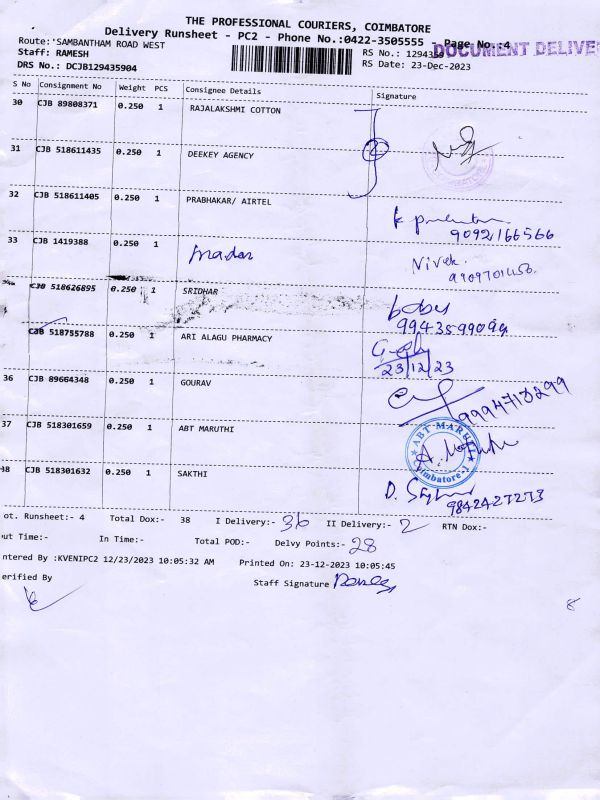 THE PROFESSIONAL COURIERS, COIMBATORE
Delivery Runsheet - PC2 - Phone No.:0422-3505555 - Page No.:4
DOCUMENT DELIVE
Route:'SAMBANTHAM ROAD WEST
Staff: RAMESH
RS No.: 12943
DRS No.: DCJB129435904
RS Date: 23-Dec-2023
S No Consignment No Weight PCS Consignee Details Signature
30 CJB 89808371 0.250 1 RAJALAKSHMI COTTON
31 CJB 518611435 0.250 1 DEEKEY AGENCY
2
32 CJB 518611405 0.250 1 PRABHAKAR/ AIRTEL
9092166566
33 CJB 1419388 0.250 1 madan
Vivek
9909701456
CJB 518626895 0.250 1 SRIDHAR
babu
9943599099
CJB 518755788 0.250 1 ARI ALAGU PHARMACY
23/12/23
36 CJB 89664348 0.250 1 GOURAV
9994713299
37 CJB 518301659 0.250 1 ABT MARUTHI
ABT MARUTHI
Coimbatore-1
38 CJB 518301632 0.250 1 SAKTHI
9842427273
ot. Runsheet:- 4 Total Dox:- 38 I Delivery:- 36 II Delivery:- 2 RTN Dox:-
ut Time:- In Time:- Total POD:- Delvy Points:- 28
ntered By :KVENIPC2 12/23/2023 10:05:32 AM Printed On: 23-12-2023 10:05:45
erified By
Staff Signature Ramesh
8